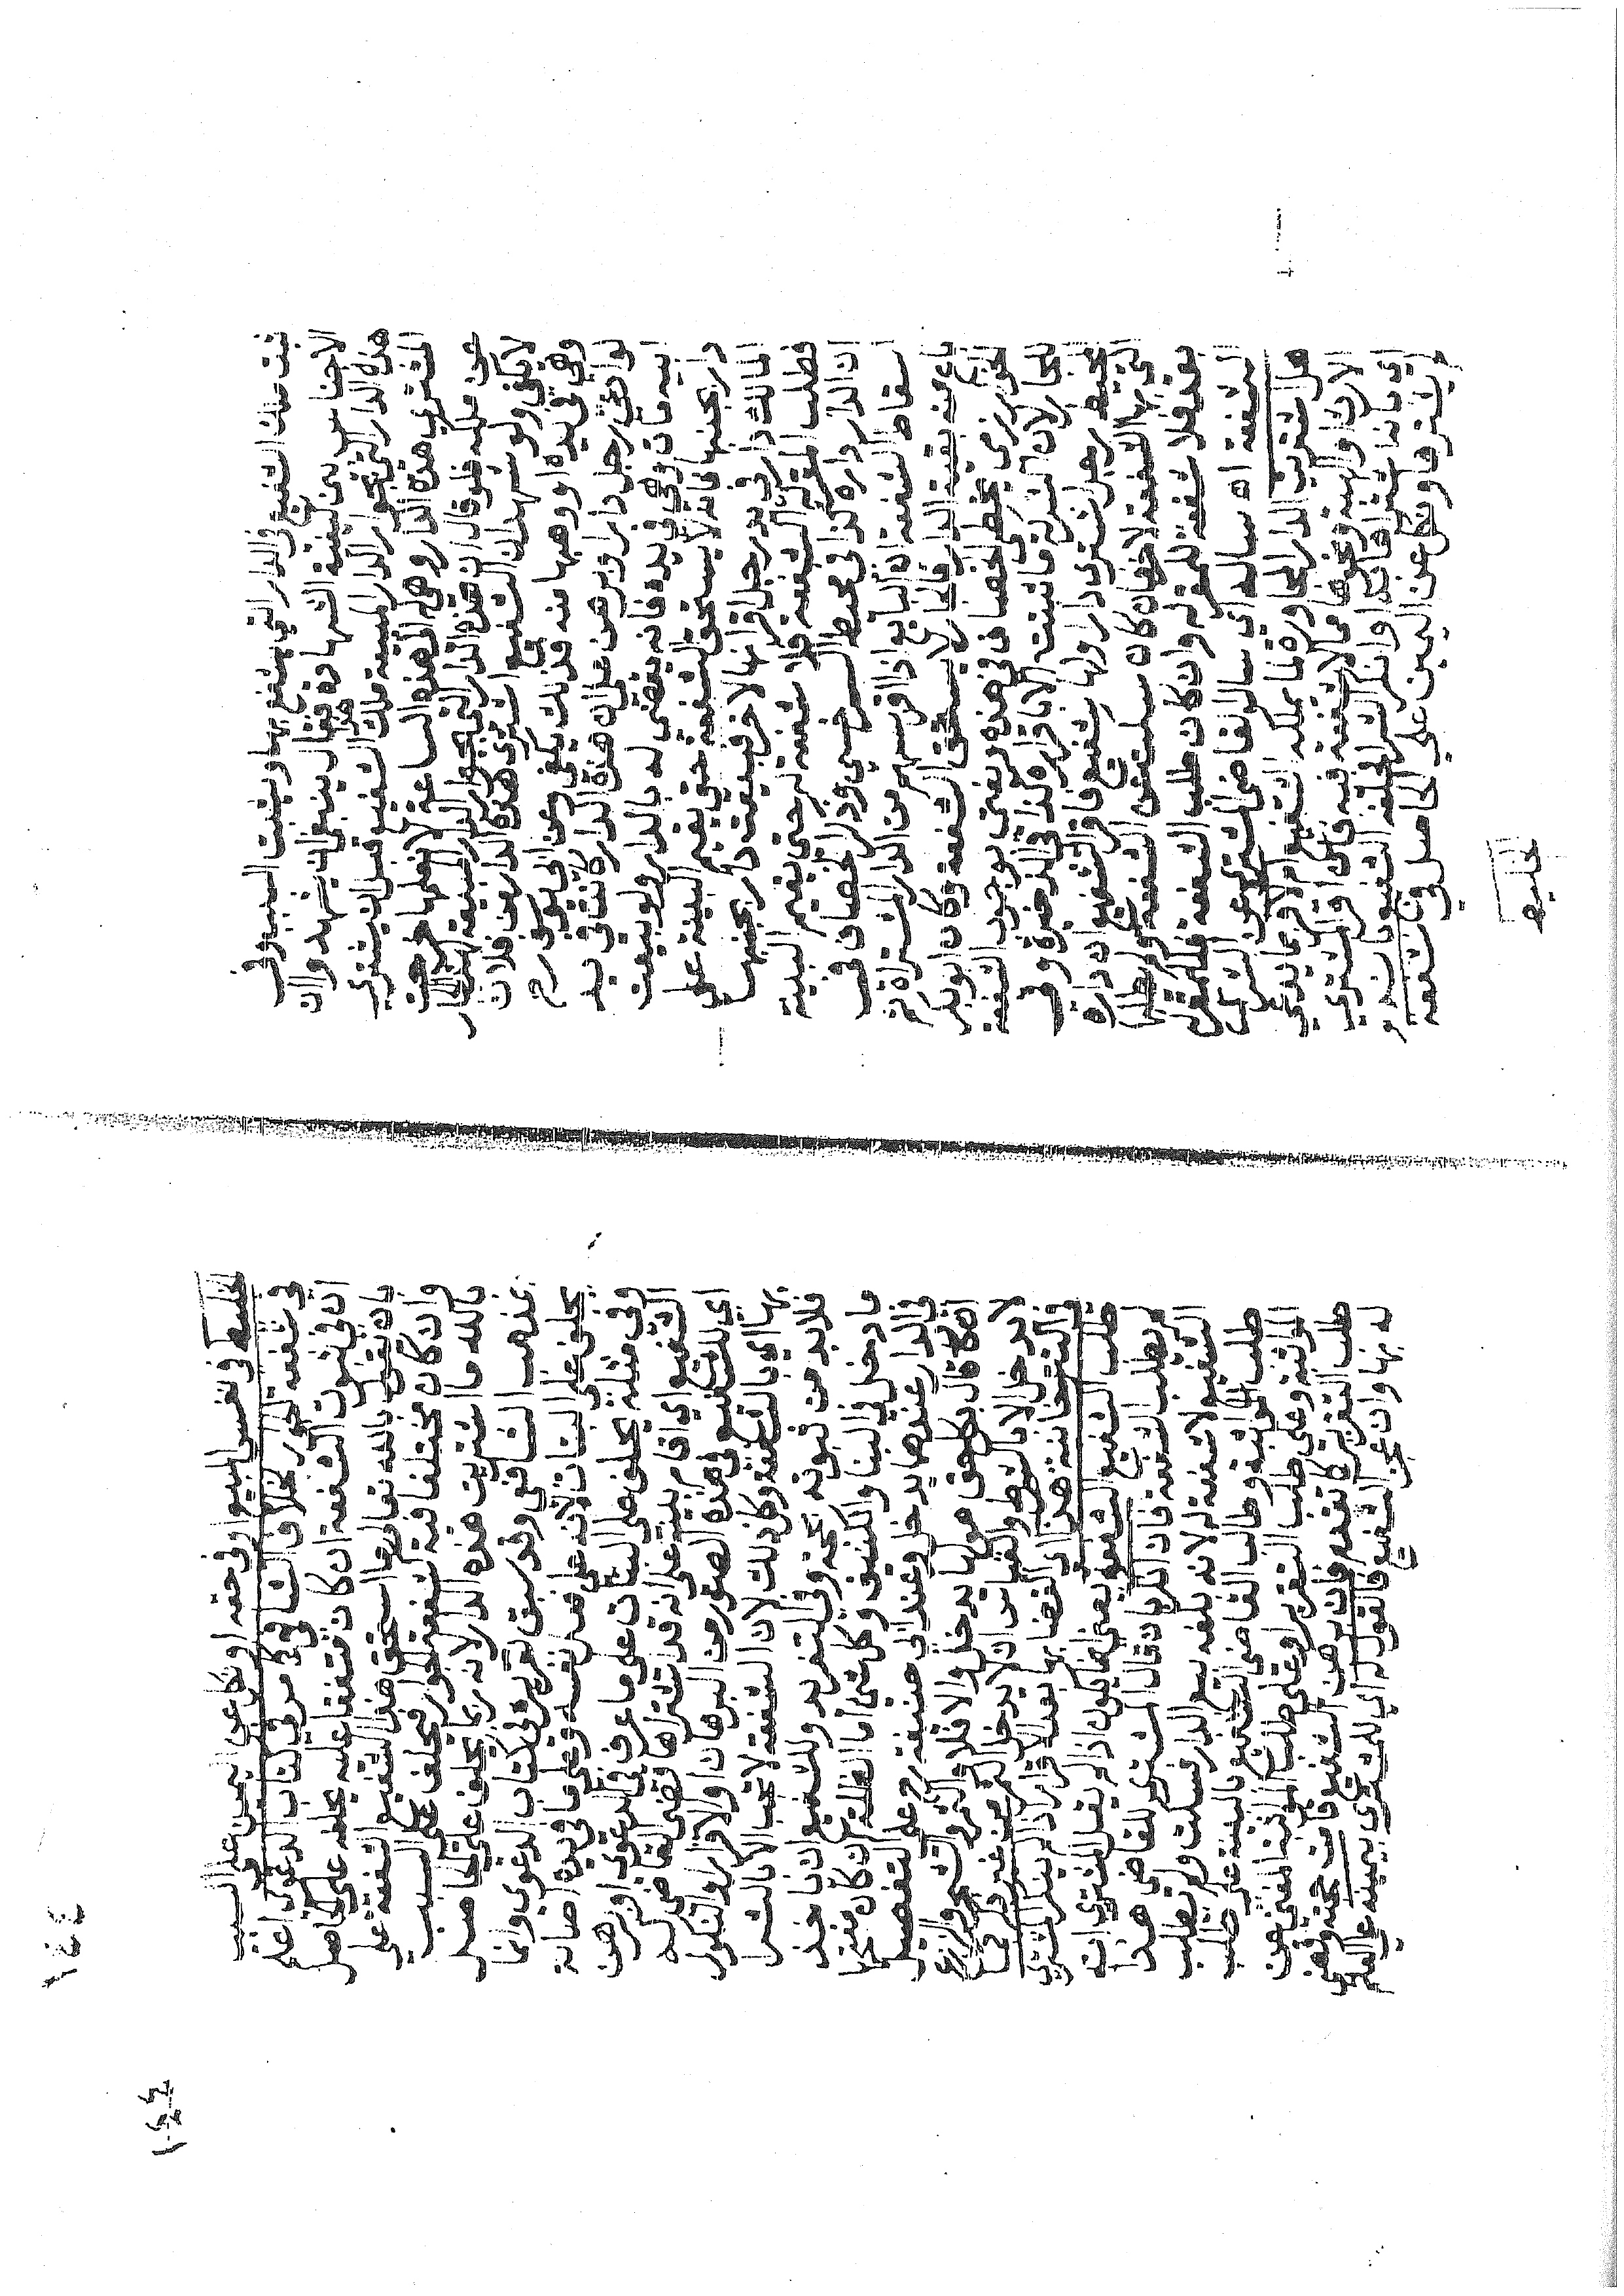 ثبت ملك الشفيع في الدار التي يشفع بها ويثبت السبب وفي
الاجناس بين كيفية الشهادة فقال ينبغي ان يشهدوا ان
هذه الدار التي بجوار الدار المبيعة ملك هذا الشفيع قبل ان يشتري
المشتري هذه الدار وهي له الى هذه الساعة لا نعلمها خرجت
عن ملكه فلو قال ان هذه الدار التي بجوار الدار المبيعة للجار
لا يكفي ولو شهدا ان الشفيع اشترى هذه الدار من فلان
وهي في يده او وهبها منه فذلك يكفي وعن ابي يوسف رح
لو ادعى رجل دارا وبرهن على ان هذه الدار كانت في يد
ابيه مات وهي في يده فانه يقضى له بالدار ولو بيعت
دار بجنبها فانه لا يستحق الشفعة حتى يقيم البينة على
المالك دار في يد رجل اقر انها لاخر فبيعت دار بجنبها
فطلب المقر له الشفعة فلا شفعة له حتى يقيم البينة
ان الدار داره كذا في محيط السرخسي وذكر الخصاف في
اسقاط الشفعة ان البايع اذا اقر بسهم من الدار للمشتراة ثم
باع منه بقية الدار فالجار لا يستحق الشفعة وكان ابو بكر
الخوارزمي يخطئ الخصاف في هذه ويفتي بوجوب الشفعة
للجار لان الشركة ما ثبتت الا باقراره كذا في الذخيرة وفي
المحيط رجل اشترى دارا ولها شفيع فاقر الشفيع ان داره
التي بها الشفعة لاخر فان كان سكت عن الشفعة ولم يطلبها
بعد فلا شفعة للمقر له وان كان طلب الشفعة فللمقر له
الشفعة اه ساله اي سال القاضي المشتري عن الشرا
هل اشتريت الدار المجاورة لما يملكه الشفيع ام لا بما يدعي
الارث او الهبة ونحوهما مما لا شفعة فيه فان اقر المشتري
اي بانه اشتراها او انكر الشرا يحلفه الشفيع بانه لم
يشتر فلو نكل عن اليمين على الحاصل في شفعة
الخليط
الخليط في نفس المبيع او في حقه او نكل عن اليمين على السبب
في شفعة الجوار خلاف الشافعي كما مر في كتاب الدعوى اعلم
انه في ثبوت الشفعة ان كان متفقا عليه يحلفه على الحاصل
بان يقول بالله تعالى ما استحق هذا الشفيع الشفعة علي
وان كان مختلفا فيه كشفعة الجوار فيحلف على السبب
بالله ما اشتريت هذه الدار لانه ربما يحلف على الحاصل
بمذهب الشافعي وقد سبق تقريره في كتاب الدعوى وانما
يحلف على البتات لانه على فعل نفسه وعلى ما في يده اصالة
وفي مثله يحلف على البتات على ما عرف في الدعوى او برهن
الشفيع اي اقام بينة على انه قد اشتراها قضى القاضي له
اي للشفيع في هذه الصور من البرهان او الاقرار او النكول
بها اي بالشفعة وكذلك لان الشفعة لا تجب الا بالشرا
فلا بد من ثبوته بحجة وفي التفريد وللشفيع ان ياخذ
ما دخل في البنا والكنيف وكل شي اما الظلة ان كان مفتحها
في الدار عندهما يدخل وعند ابي حنيفة رح على التفصيل
ان كان قال بكل حق هو لها يدخل والا فلا والثمر والشجر والزرع
لا يدخل الا بالشرط والقياس ان لا يدخل الثمر من غير ذكر كما
في التتارخانية هذا اي القضا بها بعد الاقرار اذا لم ينكر المشتري
طلب الشفيع الشفعة يعني انما يكون اذا لم يقل المشتري انه
لم يطلب الشفعة فان انكر بان قال المشتري للقاضي هذا
الشفيع لا شفعة له لانه بلغه بيع الدار فسكت ولم يطلب
طلب المواثبة وطالب القاضي الشفيع بالبينة على طلب
المواثبة وعلى طلب التقرير او على طلب المواثبة المغني عن
طلب التقرير كما تقدم فان برهن الشفيع قامت حجته وقضى
له بها وان عجز الشفيع فالقول له اي للمشتري بيمينه على العلم